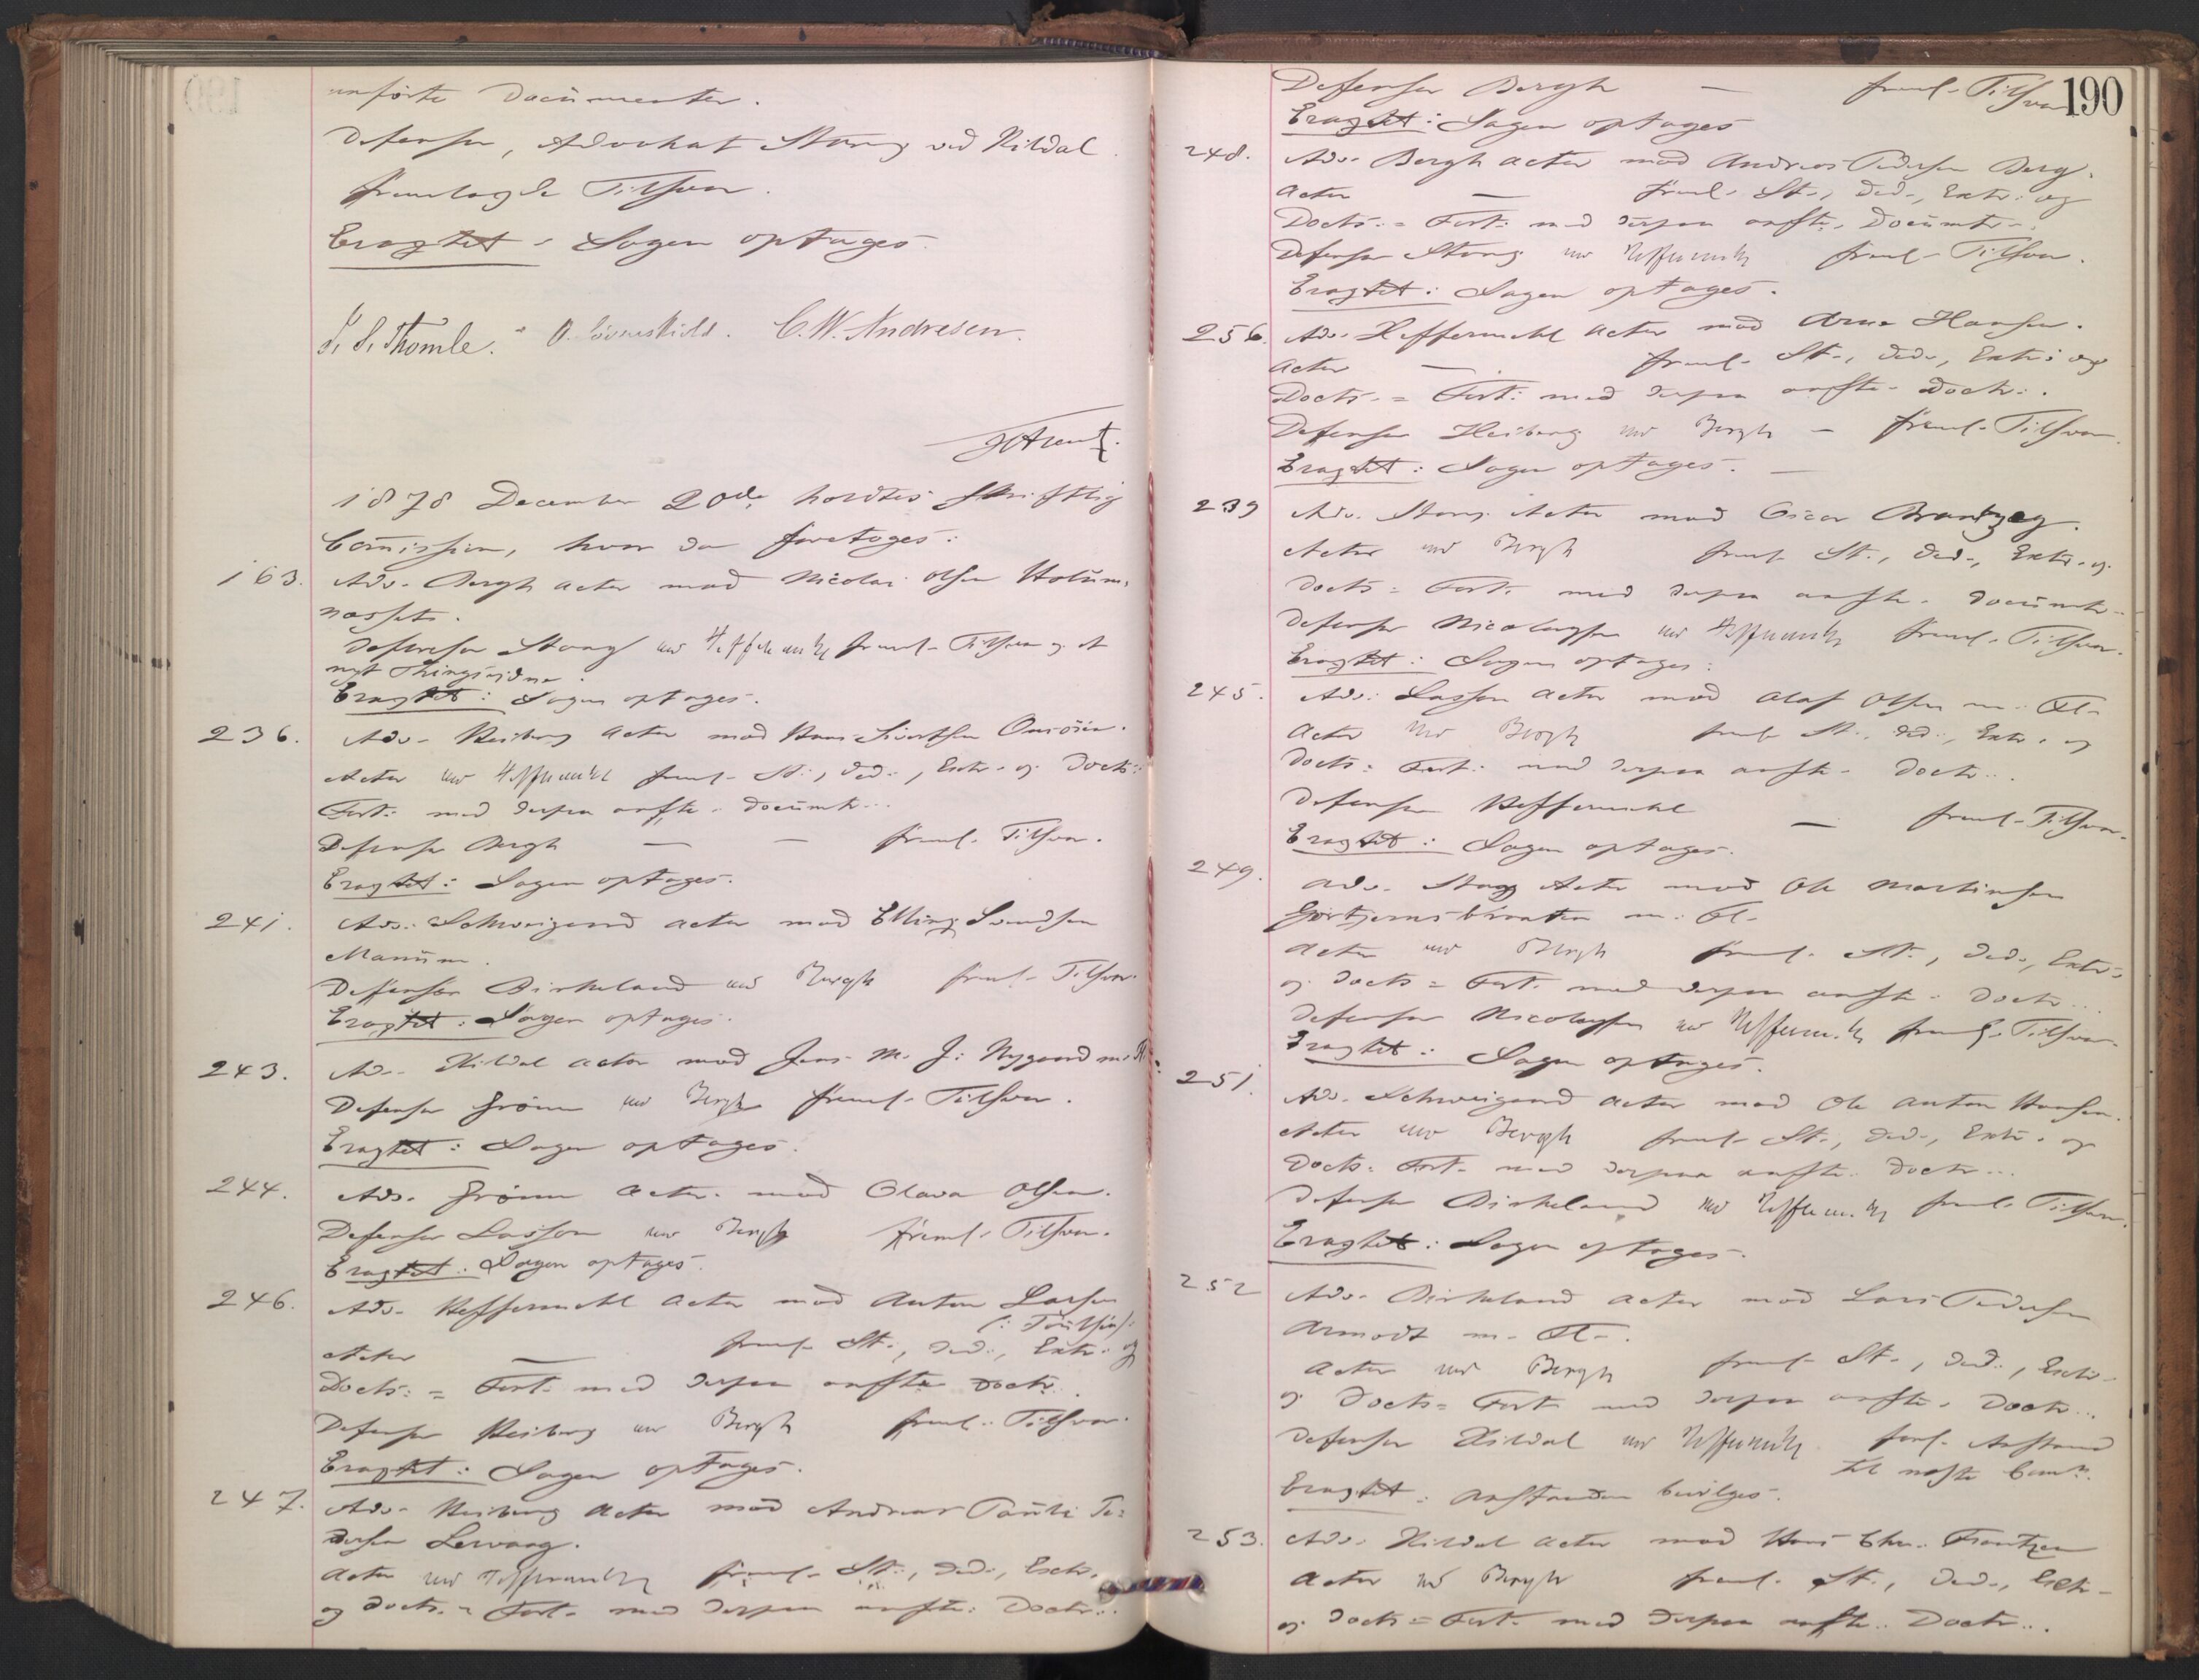 anførte Documenter.
Defensor, Advokat Stang ved Kildal
fremlagde Tilsvar.
Eragtet: Sagen optages.
I. S. Thomle. O. Løvenskiold. C. W. Andresen.
1878 December 20de holdtes skriftlig
Comission, hvor da foretoges:
163. Adv. Bergh Actor mod Nicolai Olsen Holum-
næsset.
Defensor Stang ved Heffermehl freml. Tilsvar og et
nyt Thingsvidne.
Eragtet: Sagen optages.
236. Adv. Heiberg Actor mod Hans Sivertsen
Actor ved Heffermehl freml. St., Ded., Extr. og Docts.
Fort. med derpaa anfte. Documtr.
Defensor Bergh — — freml. Tilsvar.
Eragtet: Sagen optages.
241. Adv. Schweigaard Actor mod Elling Svendsen
Manum.
Defensor Birkeland ved Bergh freml. Tilsvar.
Eragtet: Sagen optages.
243. Adv. Kildal Actor mod Jens M. J. Nygaard m. Fl.
Defensor Grønn ved Bergh freml. Tilsvar.
Eragtet: Sagen optages.
244. Adv. Grønn Actor mod Olava Olsen.
Defensor Lasson ved Bergh freml. Tilsvar.
Eragtet: Sagen optages.
246. Adv. Heffermehl Actor mod Anton Larsen
Actor — freml. St., Ded., Extr. og
Docts. = Fort. med derpaa anfte Doctr.
Defensor Heiberg ved Bergh freml. Tilsvar.
Eragtet: Sagen optages.
247. Adv. Heiberg Actor mod Andreas Pauli Pe-
dersen Lervaag.
Actor ved Heffermehl freml. St., Ded., Extr.
og Docts. = Fort. med derpaa anfte. Doctr.
190
Defensor Bergh — freml. Tilsvar
Eragtet: Sagen optages
248. Adv. Bergh Actor mod Andreas Pedersen Berg.
Actor — freml. St., Ded., Extr. og
Docts. = Fort. med derpaa anfte. Documtr.
Defensor Stang ved Heffermehl freml. Tilsvar.
Eragtet: Sagen optages.
256. Adv. Heffermehl Actor mod Arne Hansen.
Actor — freml. St., Ded., Extr. og
Docts. = Fort. med derpaa anfte. Doctr.
Defensor Heiberg ved Bergh — freml. Tilsvar.
Eragtet: Sagen optages. —
239 Adv. Stang Actor mod Oscar Brantzeg.
Actor ved Bergh freml. St., Ded., Extr. og
Docts. = Fort. med derpaa anfte. Documtr.
Defensor Nicolaysen ved Heffermehl freml. Tilsvar.
Eragtet: Sagen optages.
245. Adv. Lasson Actor mod Olaf Olsen m. Fl.
Actor ved Bergh freml. St., Ded., Extr. og
Docts. = Fort. med derpaa anfte. Doctr.
Defensor Heffermehl — freml. Tilsvar.
Eragtet: Sagen optages.
249. Adv. Stang Actor mod Ole Martinsen
Gørtjernsbraaten m. Fl.
Actor ved Bergh freml. St., Ded., Extr.
og Docts. = Fort. med derpaa anfte. Doctr.
Defensor Nicolaysen ved Heffermehl freml. Tilsvar.
Eragtet: Sagen optages.
251. Adv. Schweigaard Actor mod Ole Anton Hansen.
Actor ved Bergh freml. St., Ded., Extr. og
Docts. = Fort. med derpaa anfte. Doctr.
Defensor Birkeland ved Heffermehl freml. Tilsvar.
Eragtet: Sagen optages.
252 Adv. Birkeland Actor mod Lars Pedersen
Armodt m. Fl.
Actor ved Bergh freml. St., Ded., Extr.
og Docts. = Fort. med derpaa anfte. Doctr.
Defensor Kildal ved Heffermehl forl. Anstand
til næste Comn.
Eragtet: Anstanden bevilges.
253. Adv. Kildal Actor mod Hans Chr. Frantzen
Actor ved Bergh freml. St., Ded., Extr.
og Docts. = Fort. med derpaa anfte. Doctr.